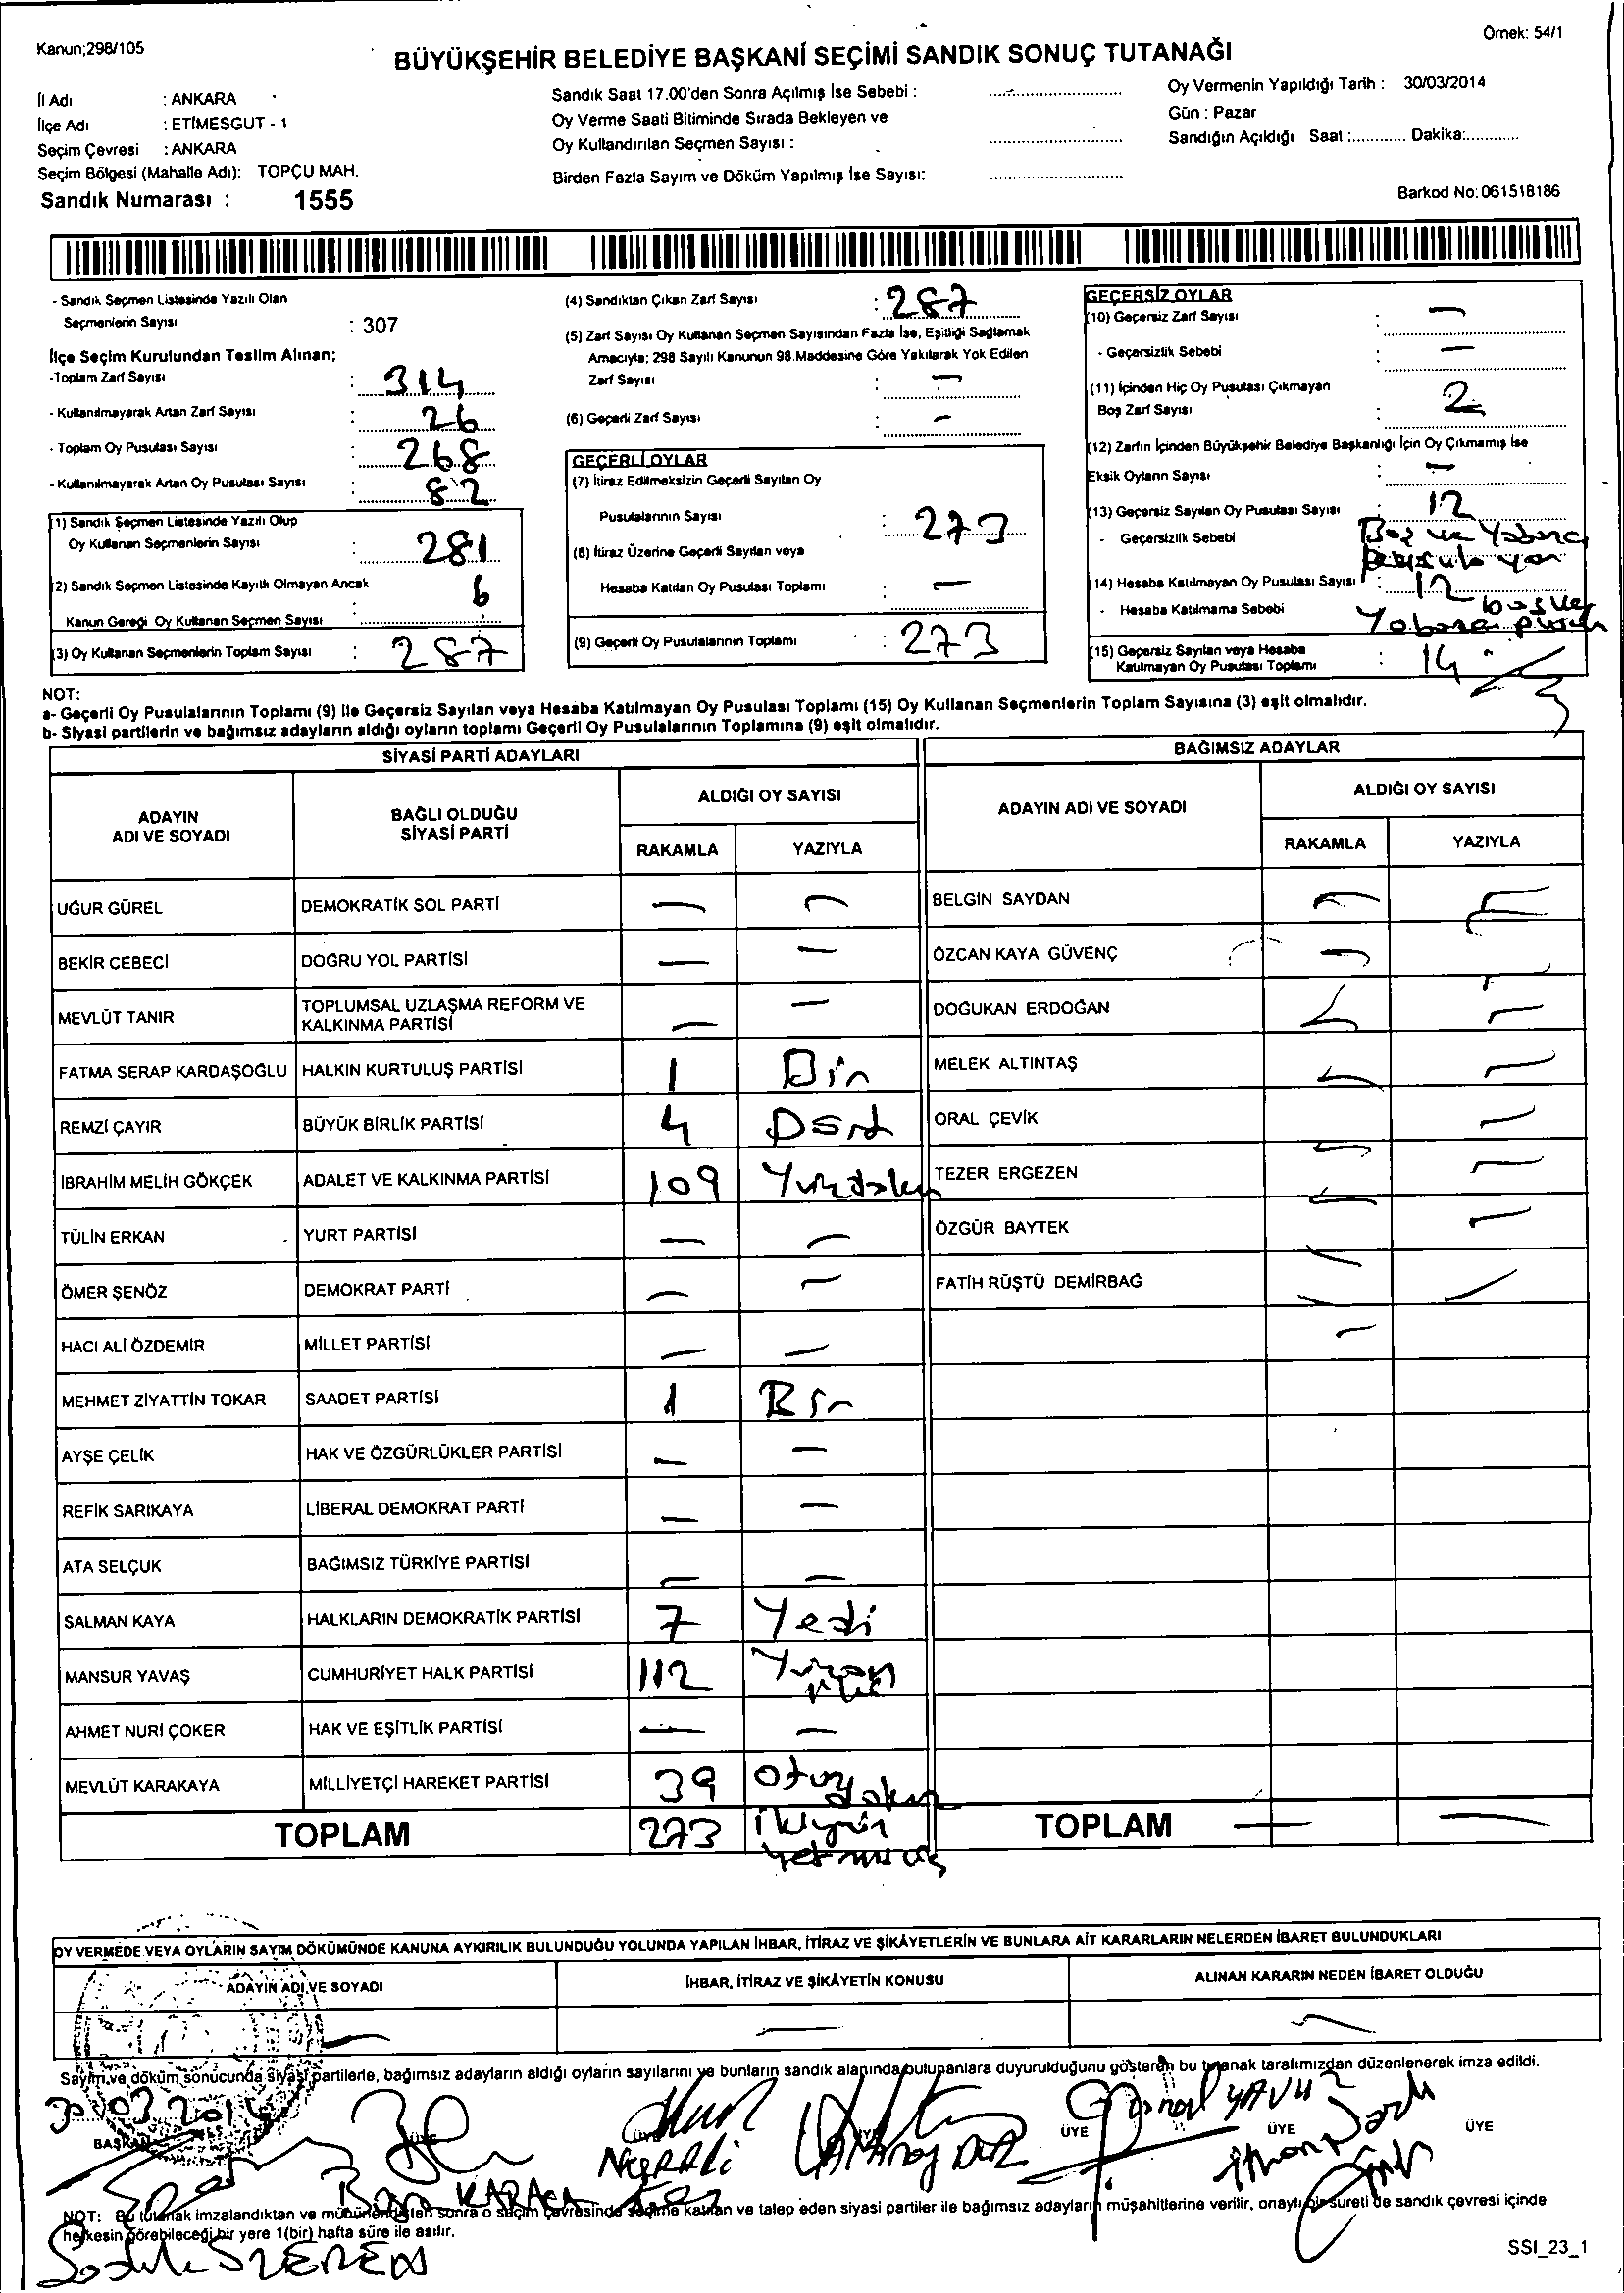 Kanun;298/105
Örnek: 54/1
BÜYÜKŞEHİR BELEDİYE BAŞKANİ SEÇİMİ SANDIK SONUÇ TUTANAĞI
İl Adı : ANKARA
İlçe Adı : ETİMESGUT - 1
Seçim Çevresi : ANKARA
Seçim Bölgesi (Mahalle Adı): TOPÇU MAH.
Sandık Numarası : 1555
Sandık Saat 17.00'den Sonra Açılmış İse Sebebi :
Oy Verme Saati Bitiminde Sırada Bekleyen ve
Oy Kullandırılan Seçmen Sayısı :
Birden Fazla Sayım ve Döküm Yapılmış İse Sayısı:
Oy Vermenin Yapıldığı Tarih : 30/03/2014
Gün : Pazar
Sandığın Açıldığı Saat :............ Dakika:............
Barkod No: 061518186
- Sandık Seçmen Listesinde Yazılı Olan
Seçmenlerin Sayısı : 307
İlçe Seçim Kurulundan Teslim Alınan;
-Toplam Zarf Sayısı : 314
- Kullanılmayarak Artan Zarf Sayısı : 26
- Toplam Oy Pusulası Sayısı : 268
- Kullanılmayarak Artan Oy Pusulası Sayısı : 82
(1) Sandık Seçmen Listesinde Yazılı Olup
Oy Kullanan Seçmenlerin Sayısı : 281
(2) Sandık Seçmen Listesinde Kayıtlı Olmayan Ancak
Kanun Gereği Oy Kullanan Seçmen Sayısı : 6
(3) Oy Kullanan Seçmenlerin Toplam Sayısı : 287
(4) Sandıktan Çıkan Zarf Sayısı : 287
(5) Zarf Sayısı Oy Kullanan Seçmen Sayısından Fazla İse, Eşitliği Sağlamak
Amacıyla; 298 Sayılı Kanunun 98.Maddesine Göre Yakılarak Yok Edilen
Zarf Sayısı : —
(6) Geçerli Zarf Sayısı : —
GEÇERLİ OYLAR
(7) İtiraz Edilmeksizin Geçerli Sayılan Oy
Pusulalarının Sayısı : 273
(8) İtiraz Üzerine Geçerli Sayılan veya
Hesaba Katılan Oy Pusulası Toplamı : —
(9) Geçerli Oy Pusulalarının Toplamı : 273
GEÇERSİZ OYLAR
(10) Geçersiz Zarf Sayısı : —
- Geçersizlik Sebebi : —
(11) İçinden Hiç Oy Pusulası Çıkmayan
Boş Zarf Sayısı : 2
(12) Zarfın İçinden Büyükşehir Belediye Başkanlığı İçin Oy Çıkmamış İse
Eksik Oyların Sayısı : —
(13) Geçersiz Sayılan Oy Pusulası Sayısı : 12
- Geçersizlik Sebebi Boş ve Yabancı
(14) Hesaba Katılmayan Oy Pusulası Sayısı : 12
- Hesaba Katılmama Sebebi boş ve
Yabancı
(15) Geçersiz Sayılan veya Hesaba
Katılmayan Oy Pusulası Toplamı : 14
NOT:
a- Geçerli Oy Pusulalarının Toplamı (9) ile Geçersiz Sayılan veya Hesaba Katılmayan Oy Pusulası Toplamı (15) Oy Kullanan Seçmenlerin Toplam Sayısına (3) eşit olmalıdır.
b- Siyasi partilerin ve bağımsız adayların aldığı oyların toplamı Geçerli Oy Pusulalarının Toplamına (9) eşit olmalıdır.
SİYASİ PARTİ ADAYLARI
ADAYIN
ADI VE SOYADI
BAĞLI OLDUĞU
SİYASİ PARTİ
ALDIĞI OY SAYISI
RAKAMLA YAZIYLA
UĞUR GÜREL DEMOKRATİK SOL PARTİ — —
BEKİR CEBECİ DOĞRU YOL PARTİSİ — —
MEVLÜT TANIR TOPLUMSAL UZLAŞMA REFORM VE
KALKINMA PARTİSİ — —
FATMA SERAP KARDAŞOĞLU HALKIN KURTULUŞ PARTİSİ 1 Bir
REMZİ ÇAYIR BÜYÜK BİRLİK PARTİSİ 4 Dört
İBRAHİM MELİH GÖKÇEK ADALET VE KALKINMA PARTİSİ 109 Yüzdokuz
TÜLİN ERKAN YURT PARTİSİ — —
ÖMER ŞENÖZ DEMOKRAT PARTİ — —
HACI ALİ ÖZDEMİR MİLLET PARTİSİ — —
MEHMET ZİYATTİN TOKAR SAADET PARTİSİ 1 Bir
AYŞE ÇELİK HAK VE ÖZGÜRLÜKLER PARTİSİ — —
REFİK SARIKAYA LİBERAL DEMOKRAT PARTİ — —
ATA SELÇUK BAĞIMSIZ TÜRKİYE PARTİSİ — —
SALMAN KAYA HALKLARIN DEMOKRATİK PARTİSİ 7 Yedi
MANSUR YAVAŞ CUMHURİYET HALK PARTİSİ 112 Yüzon
iki
AHMET NURİ ÇOKER HAK VE EŞİTLİK PARTİSİ — —
MEVLÜT KARAKAYA MİLLİYETÇİ HAREKET PARTİSİ 39 Otuz
dokuz
TOPLAM 273 ikiyüz
yetmiş üç
BAĞIMSIZ ADAYLAR
ADAYIN ADI VE SOYADI
ALDIĞI OY SAYISI
RAKAMLA YAZIYLA
BELGİN SAYDAN — —
ÖZCAN KAYA GÜVENÇ — —
DOĞUKAN ERDOĞAN — —
MELEK ALTINTAŞ — —
ORAL ÇEVİK — —
TEZER ERGEZEN — —
ÖZGÜR BAYTEK — —
FATİH RÜŞTÜ DEMİRBAĞ — —
TOPLAM — —
OY VERMEDE VEYA OYLARIN SAYIM DÖKÜMÜNDE KANUNA AYKIRILIK BULUNDUĞU YOLUNDA YAPILAN İHBAR, İTİRAZ VE ŞİKÂYETLERİN VE BUNLARA AİT KARARLARIN NELERDEN İBARET BULUNDUKLARI
ADAYIN ADI VE SOYADI İHBAR, İTİRAZ VE ŞİKÂYETİN KONUSU ALINAN KARARIN NEDEN İBARET OLDUĞU
— — —
Sayım ve döküm sonucunda siyasi partilerle, bağımsız adayların aldığı oyların sayılarını ve bunların sandık alanında bulunanlara duyurulduğunu gösteren bu tutanak tarafımızdan düzenlenerek imza edildi.
30.03.2014
BAŞKAN ÜYE ÜYE ÜYE ÜYE ÜYE ÜYE
YAVUZ
KARACA
NOT: Bu tutanak imzalandıktan ve mühürlendikten sonra o seçim çevresinde seçime katılan ve talep eden siyasi partiler ile bağımsız adayların müşahitlerine verilir, onaylı bir sureti de sandık çevresi içinde
herkesin görebileceği bir yere 1(bir) hafta süre ile asılır.
SSI_23_1